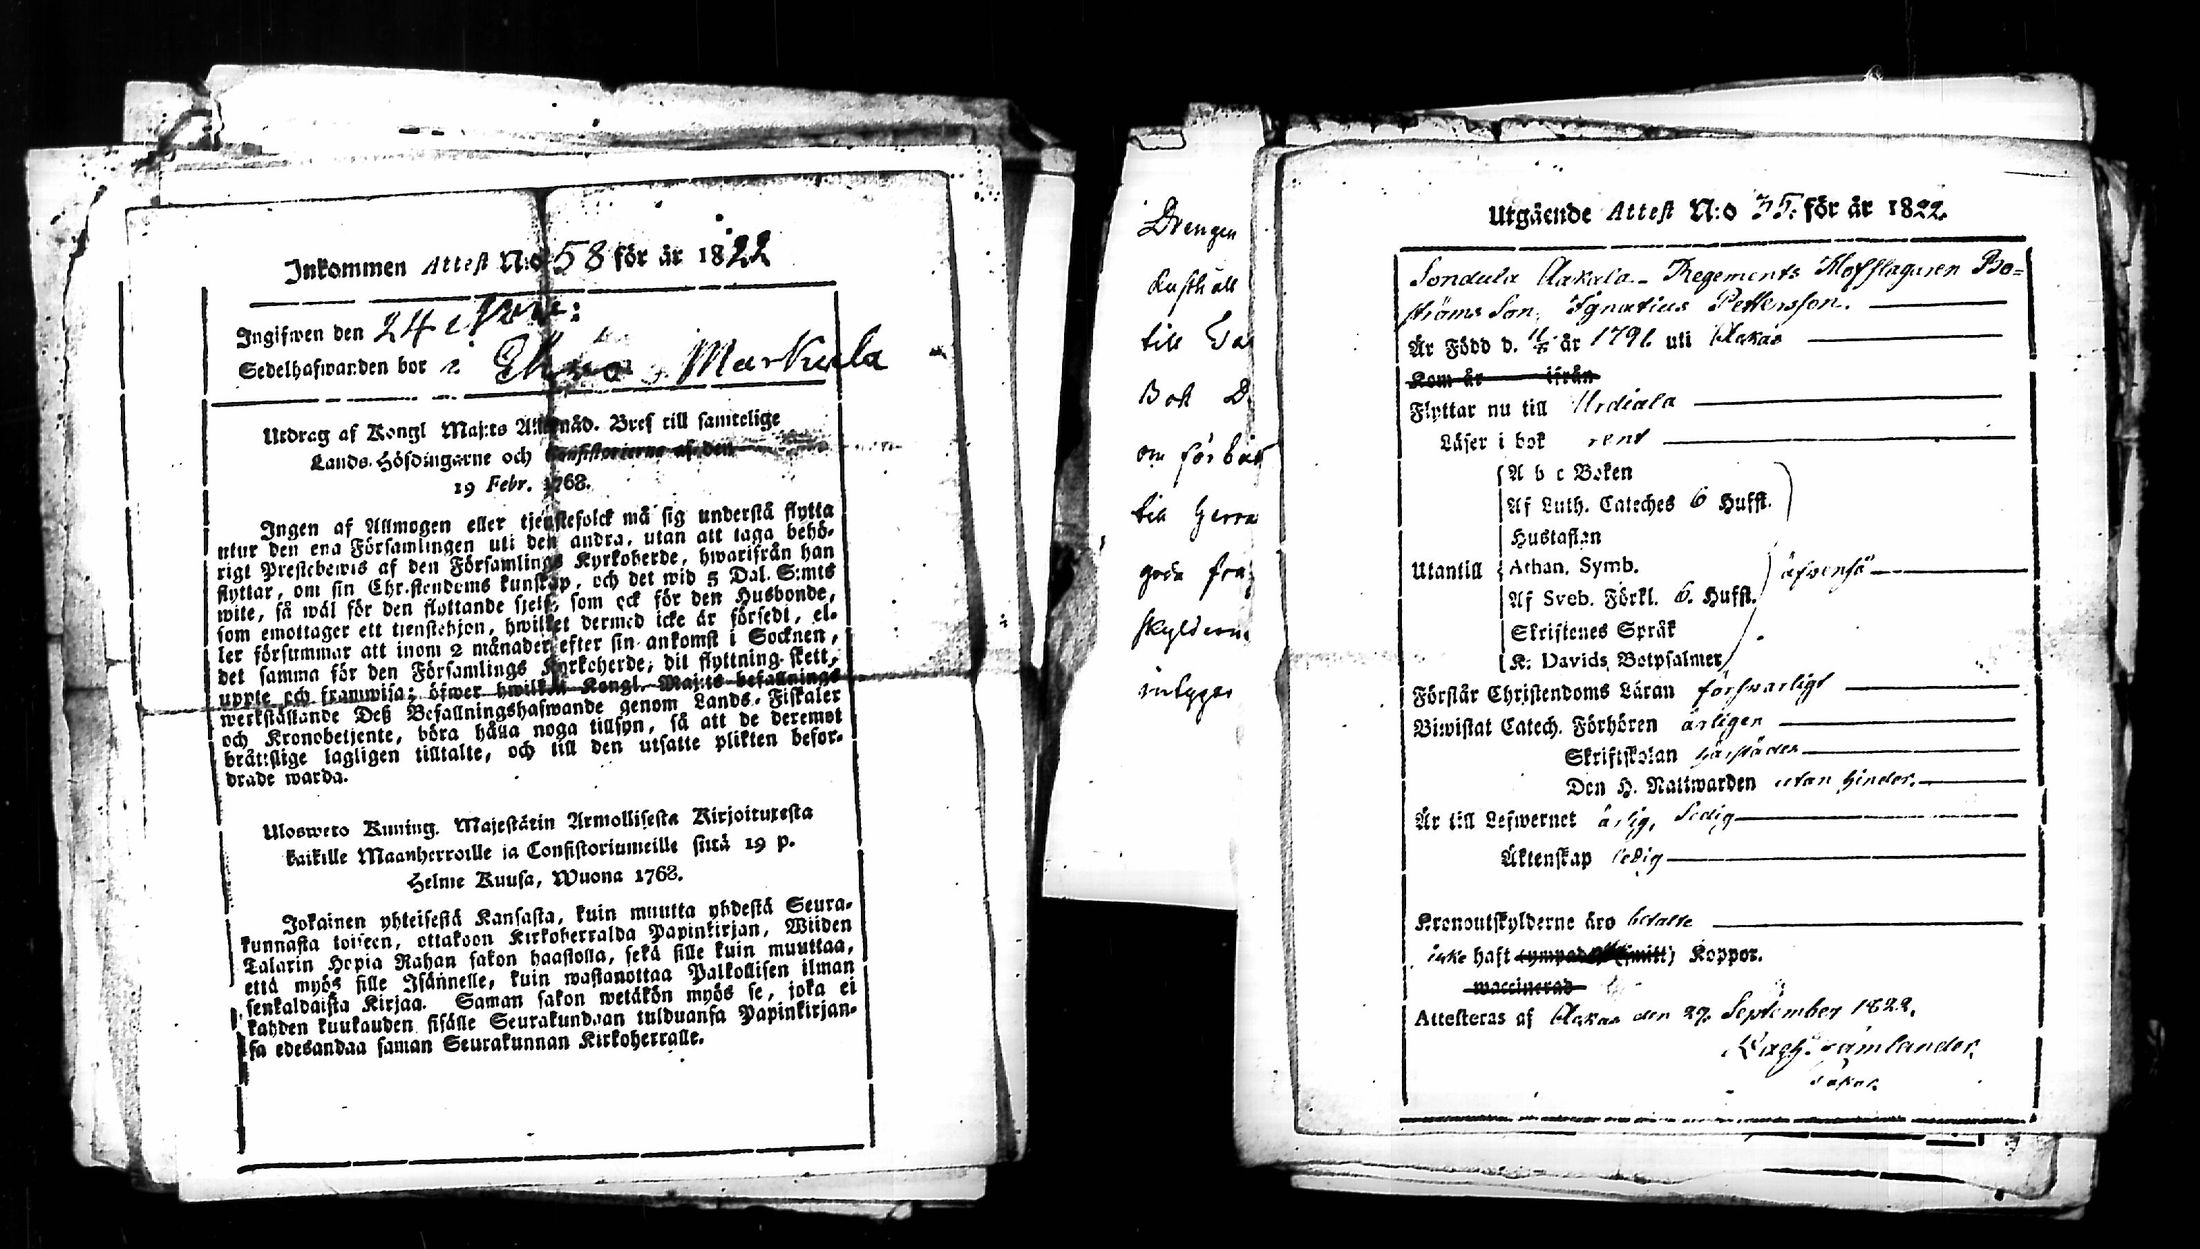 Inkommen Attest N:o 58 för år 1822
Ingifwen den 24 Nov:
Sedelhafwanden bor i Markula
Utdrag af Kongl Maj:ts Allernåd. Bref till samtelige
Lands-Höfdingarne och Consistorierne af den
19 Febr. 1768.
Ingen af Allmogen eller tjenstefolck må sig understå flytta
utur den ena Församlingen uti den andra, utan att taga behö-
rigt Prestebewis af den Församlings Kyrkoherde, hwarifrån han
flyttar, om sin Christendoms kunskap, och det wid 5 Dal. S:mts
wite, så wäl för den flyttande sjelf, som ock för den Husbonde,
som emottager ett tienstehjon, hwilket dermed icke är försedt, el-
ler försummar att inom 2 månader efter sin ankomst i Socknen,
det samma för den Församlings Kyrkoherde, dit flyttning skett,
uppte och framwisa; öfwer hwilken Kongl. Maj:ts befallnings
werkställande Deß Befallningshafwande genom Lands-Fiskaler
och Kronobetjente, böra hålla noga tillsyn, så att de deremot
bråttslige lagligen tilltalte, och till den utsatte plikten befor-
drade warda.
Uloswero Kuning. Majestätin Armollisesta Kirjoituxesta
kaikille Maanherroille ja Consistoriumeille siitä 19 p.
Helme Kuusa, Wuona 1768.
Jokainen yhteisestä Kansasta, kuin muutta yhdestä Seura-
kunnasta toiseen, ottakoon Kirkoherralda Papinkirjan, Wiiden
Talarin Hopia Rahan sakon haastolla, sekä sille kuin muuttaa,
että myös sille Isännelle, kuin wastanottaa Palkollisen ilman
senkaldaista Kirjaa. Saman sakon wetäkön myös se, joka ei
kahden kuukauden sisälle Seurakundaan tulduansa Papinkirjan-
sa edesandaa saman Seurakunnan Kirkoherralle.
Drengen
Rusthåll
till
Bost D
om förbät
till Herra
goda fra
skyldern
intyger
Utgående Attest N:o 35. för år 1822.
Sondula Aakala. Regements Hofslagaren Bo=
ströms Son, Ignatius Pettersson.
Är Född d. år 1791. uti Ackas
Kom år ifrån
Flyttar nu till Urdiala
Läser i bok rent
A b c Boken
Af Luth. Cateches 6 Hufst.
Hustaflan
Utantill Athan. Symb. äfvenså
Af Sveb. Förkl. 6. Hufst.
Skriftenes Språk
K: Davids Botpsalmer
Förstår Christendoms Läran försvarligt
Biwistat Catech. Förhören årligen
Skriftskolan härstädes
Den H. Nattwarden utan hinder.
Är till Lefwernet ärlig, Sedig
Äktenskap ledig
Kronoutskylderne äro betalte
icke haft Koppor.
waccinerad
Attesteras af Ackas den 27. September 1822.